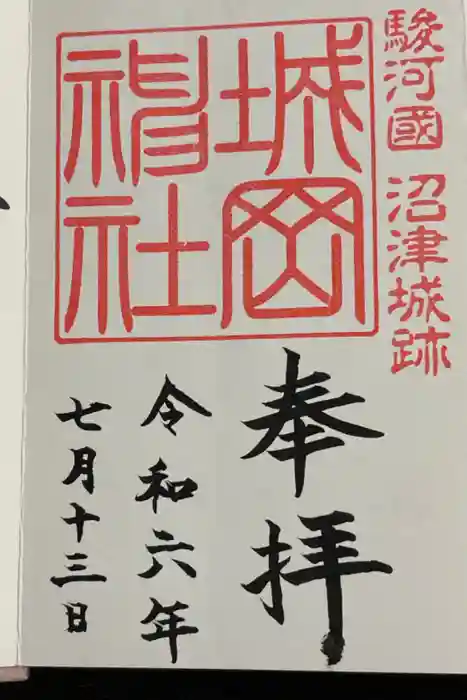 駿河國 沼津城跡
城岡
神社
奉拝
令和六年
七月十三日